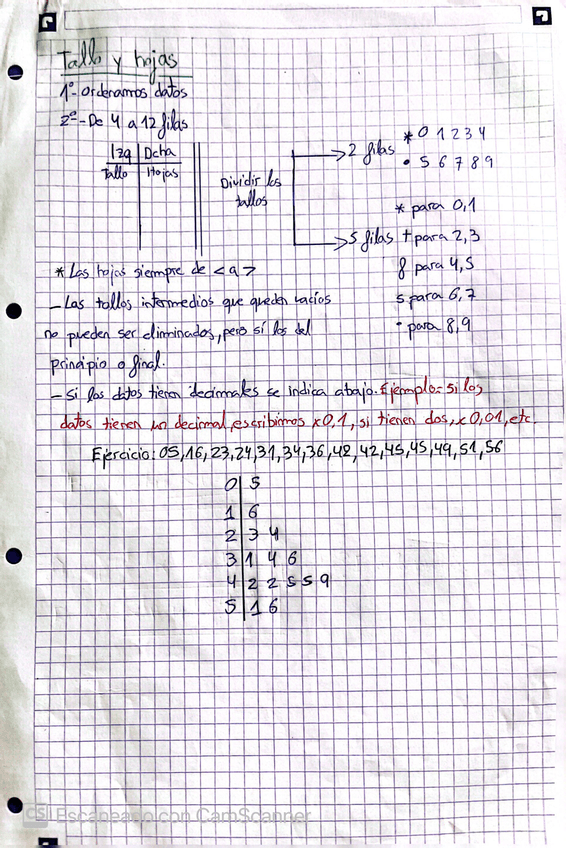 Tallo y hojas
1º- Ordenamos datos
2º- De 4 a 12 filas
Izq | Dcha
Tallo | Hojas
Dividir los
tallos
2 filas
* 0 1 2 3 4
• 5 6 7 8 9
5 filas
* para 0,1
+ para 2,3
f para 4,5
s para 6,7
· para 8,9
* Las hojas siempre de < a >
- Los tallos intermedios que queden vacíos
no pueden ser eliminados, pero sí los del
principio o final.
- Si los datos tienen decimales se indica abajo. Ejemplo: si los
datos tienen un decimal, escribimos x0,1, si tienen dos, x0,01, etc.
Ejercicio: 05, 16, 23, 24, 31, 34, 36, 42, 42, 45, 45, 49, 51, 56
0 | 5
1 | 6
2 | 3 4
3 | 1 4 6
4 | 2 2 5 5 9
5 | 1 6
CS Escaneado con CamScanner